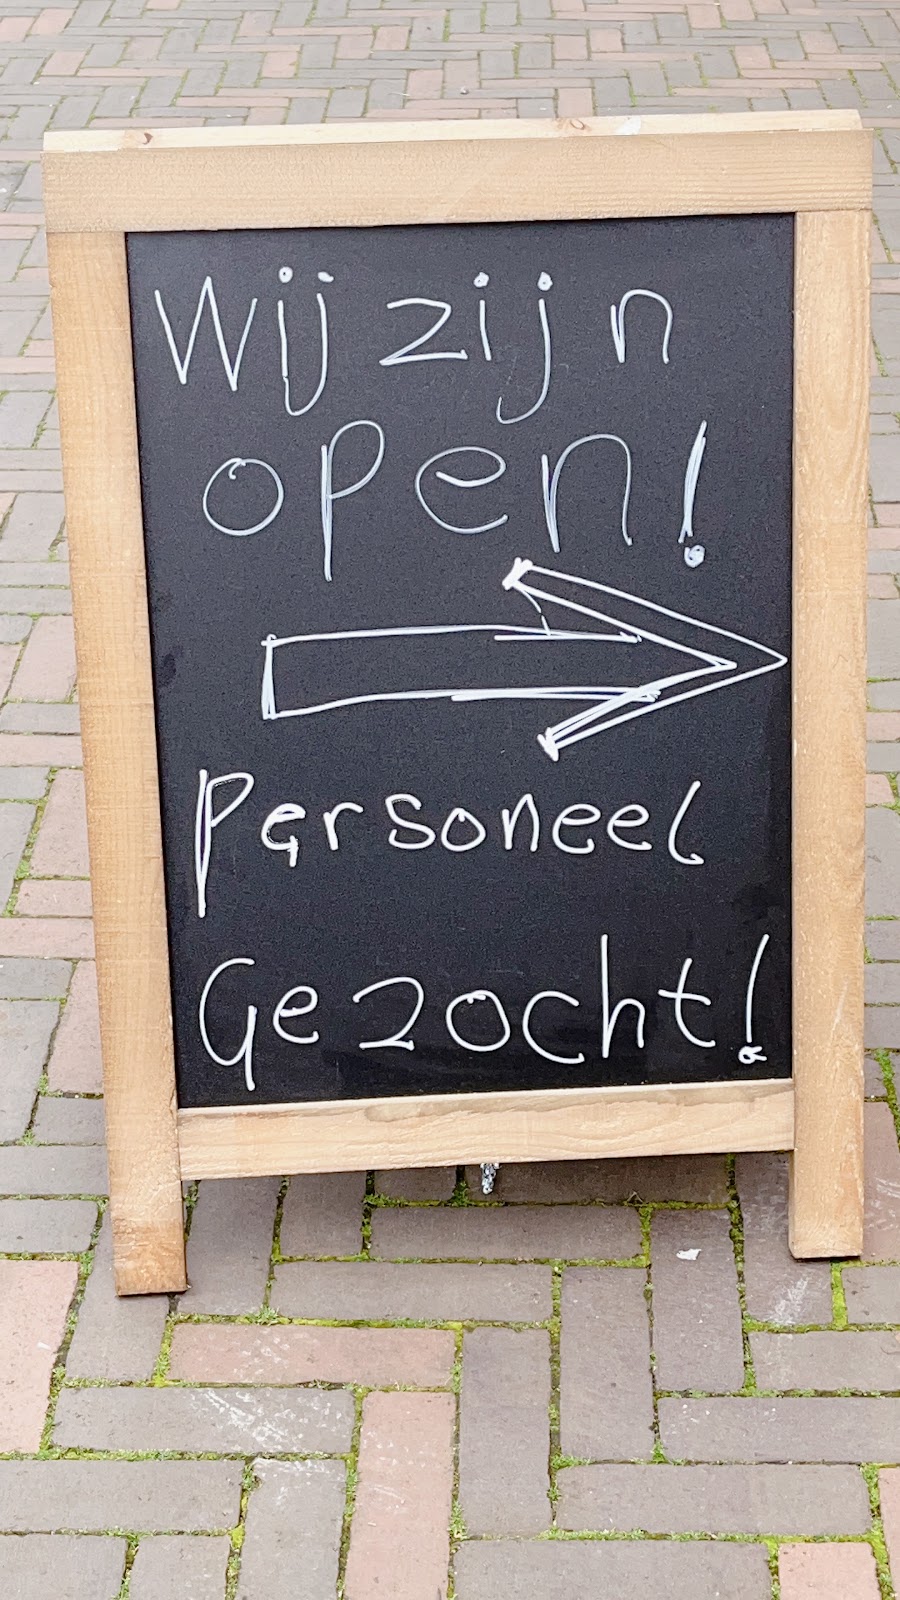 Wij zijn
open!
Personeel
Gezocht!